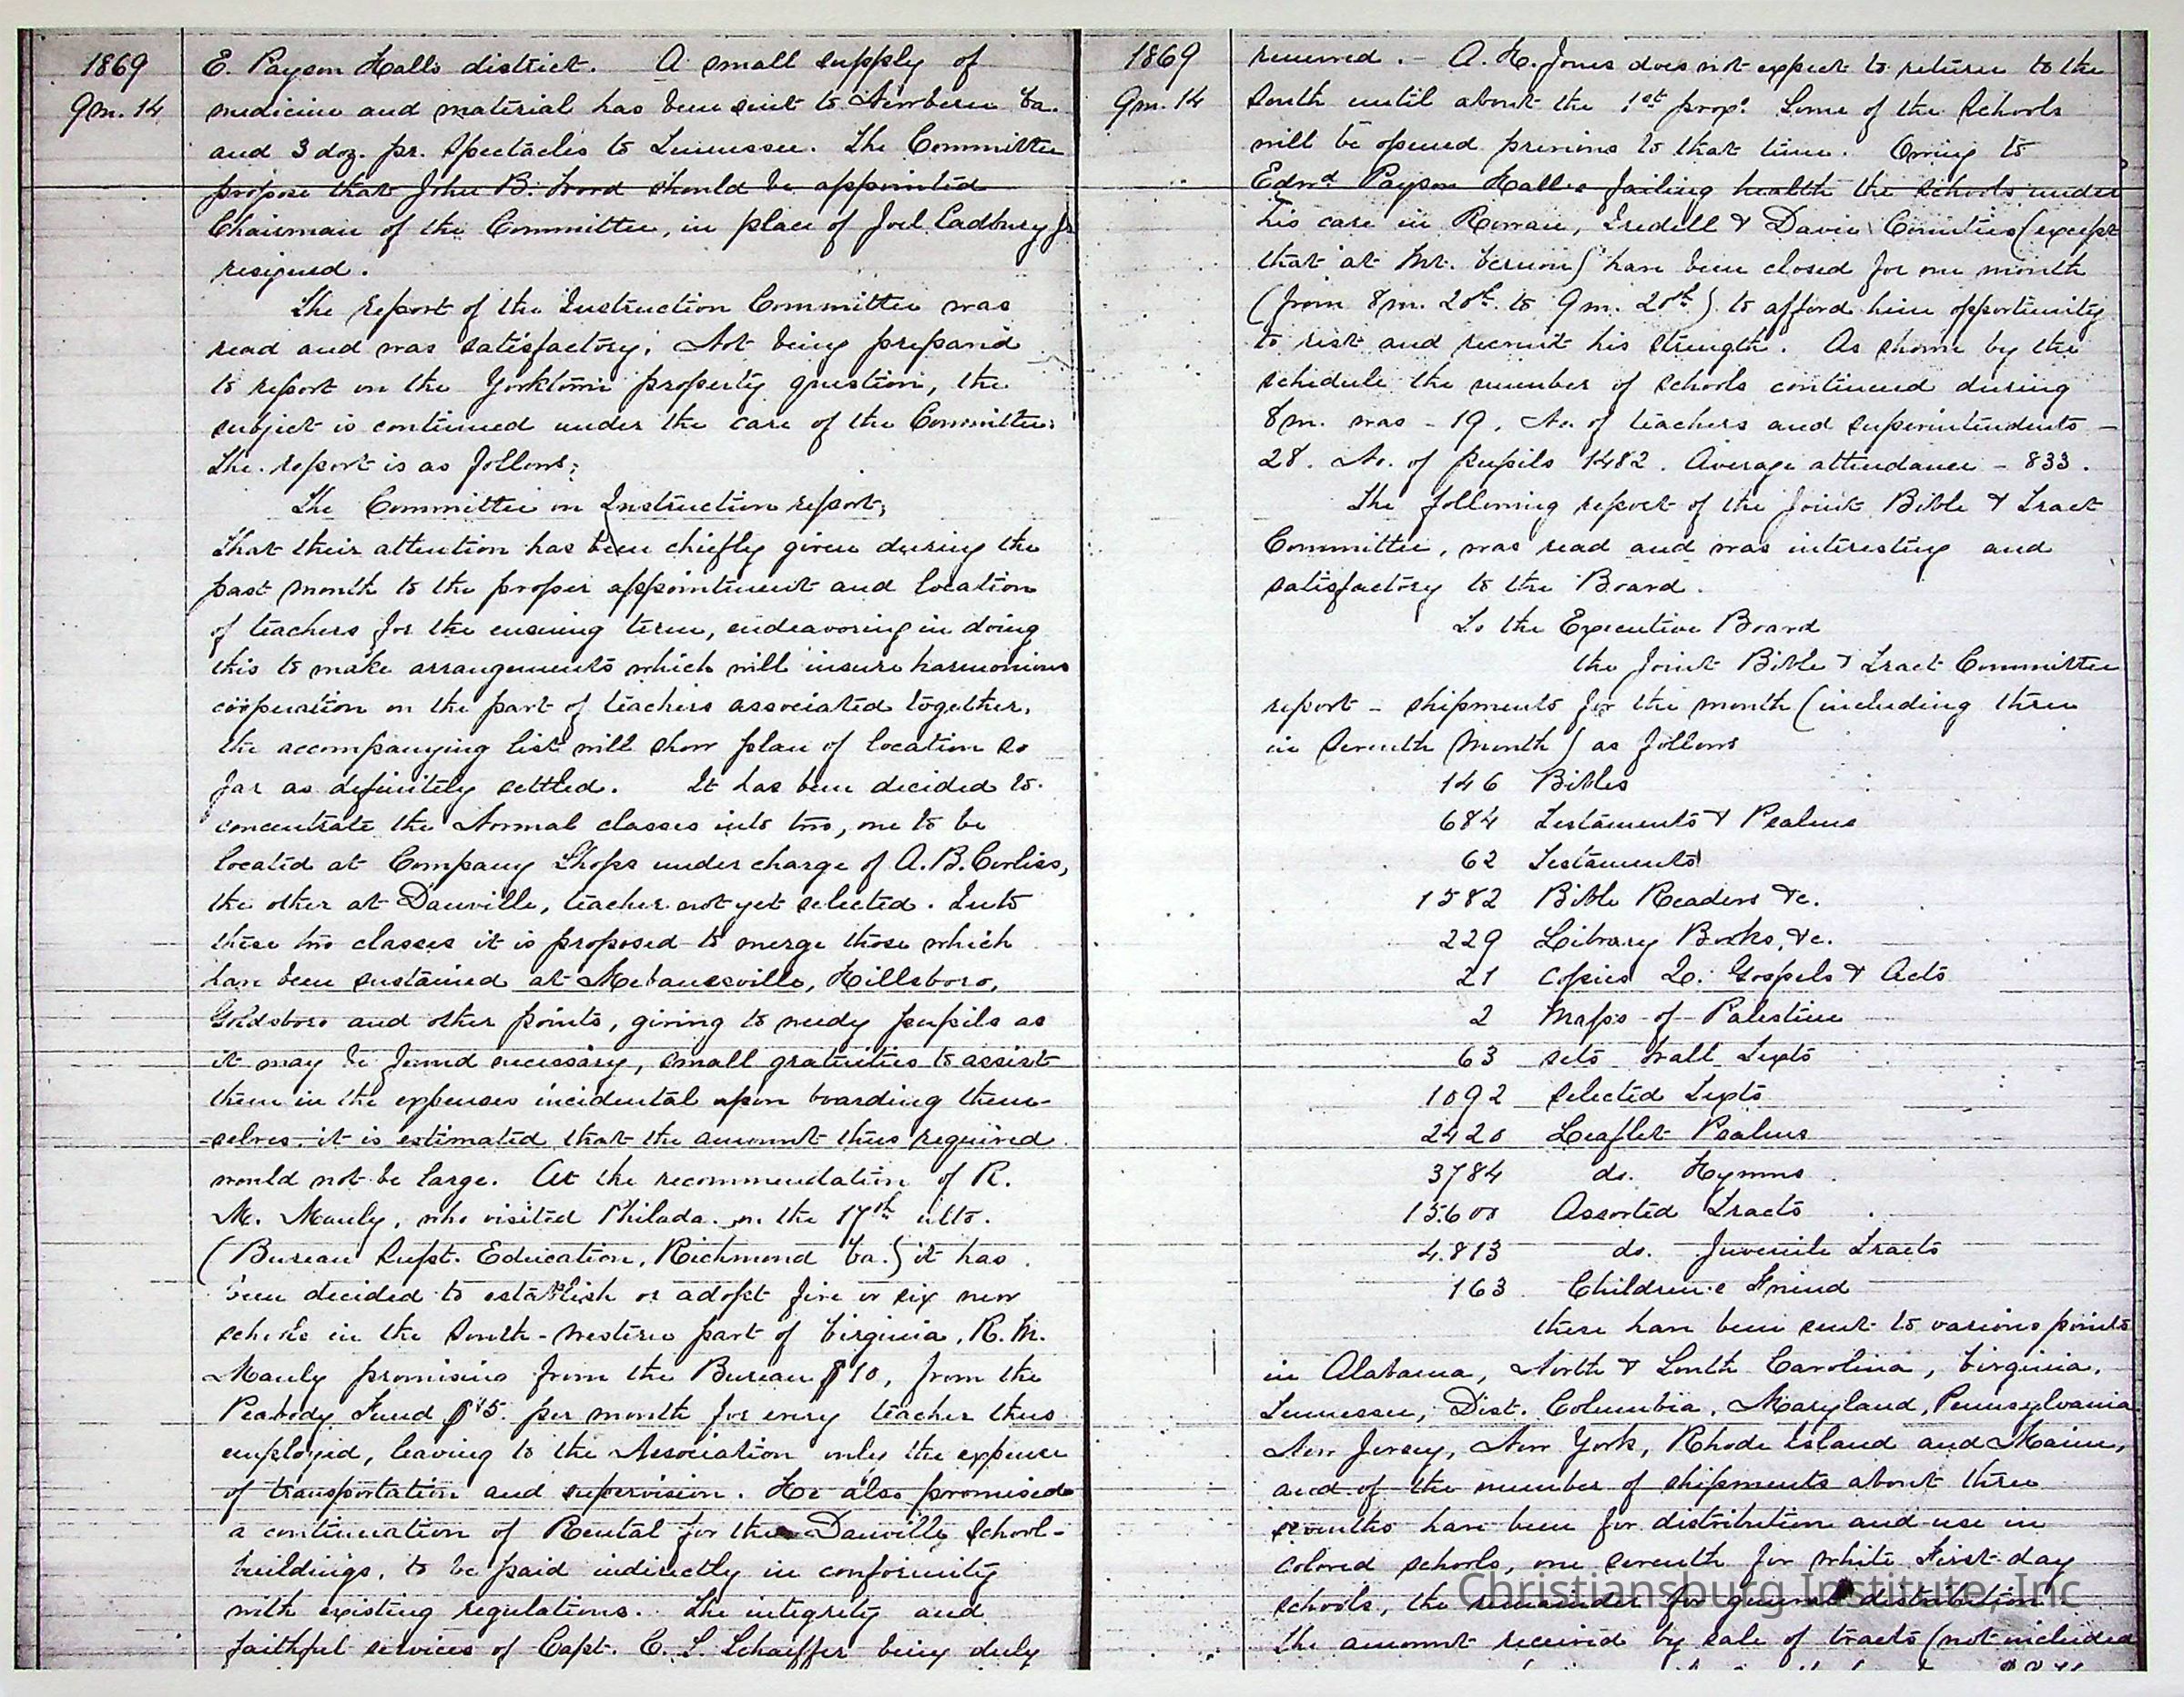 1869
9m. 14
E. Payson Halls district. A small supply of
medicine and material has been sent to Newbern Va.
and 3 doz. pr. Spectacles to Tennessee. The Committee
propose that John B. Wood should be appointed
Chairman of the Committee, in place of Joel Cadbury Jr
resigned.
The report of the Instruction Committee was
read and was satisfactory. Not being prepared
to report on the Yorktown property question, the
subject is continued under the care of the Committee.
The report is as follows:
The Committee on Instruction report,
That their attention has been chiefly given during the
past month to the proper appointment and location
of teachers for the ensuing term, endeavoring in doing
this to make arrangements which will insure harmonious
coöperation on the part of teachers associated together.
the accompanying list will show plan of location so
far as definitely settled. It has been decided to
concentrate the Normal classes into two, one to be
located at Company Shops under charge of A. B. Corliss,
the other at Danville, teacher not yet selected. Into
these two classes it is proposed to merge those which
have been sustained at Mebanesville, Hillsboro,
Goldsboro and other points, giving to needy pupils as
it may be found necessary, small gratuities to assist
them in the expenses incidental upon boarding them-
-selves. it is estimated that the amount thus required
would not be large. At the recommendation of R.
M. Manly, who visited Philada. on the 17th ulto.
(Bureau Supt. Education, Richmond Va.) it has
been decided to establish or adopt five or six new
schools in the South-western part of Virginia, R. M.
Manly promising from the Bureau $10, from the
Peabody Fund $15. per month for every teacher thus
employed, leaving to the Association only the expense
of transportation and supervision. He also promised
a continuation of Rental for the Danville School-
buildings, to be paid indirectly in conformity
with existing regulations. The integrity and
faithful services of Capt. C. S. Schaeffer being duly
1869
9m. 14
renewed. - A. H. Jones does not expect to return to the
South until about the 1st prox. Some of the Schools
will be opened previous to that time. Owing to
Edwd Payson Hall's failing health the schools under
his care in Rowan, Iredell & Davie Counties (except
that at Mt. Vernon) have been closed for one month
(from 8m. 20th to 9m. 20th) to afford him opportunity
to rest and recruit his strength. As shown by the
schedule the number of schools continued during
8m. was - 19. No. of teachers and superintendents -
28. No. of Pupils 1482. Average attendance - 833.
The following report of the Joint Bible & Tract
Committee, was read and was interesting and
satisfactory to the Board.
To the Executive Board
the Joint Bible & Tract Committee
report - shipments for the month (including three
in Seventh Month) as follows
146 Bibles
684 Testaments & Psalms
62 Testaments
1582 Bible Readers &c.
229 Library Books, &c.
21 Copies Gospels & Acts
2 Maps of Palestine
63 sets Wall Texts
1092 selected Texts
2420 Leaflet Psalms
3784 do. Hymns
15600 Assorted Tracts
4.813 do. Juvenile Tracts
163 Children's Friend
these have been sent to various points
in Alabama, North & South Carolina, Virginia,
Tennessee, Dist. Columbia, Maryland, Pennsylvania
New Jersey, New York, Rhode Island and Maine,
and of the number of shipments about three
sevenths have been for distribution and use in
colored schools, one seventh for white First-day
schools, the remainder for general distribution.
The amount received by sale of tracts (not included
Christiansburg Institute, Inc